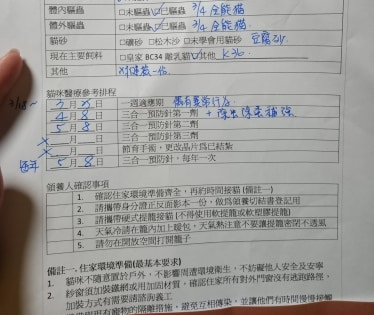 體內驅蟲 □未驅蟲 ☑已驅蟲 3/4 全能貓
體外驅蟲 □未驅蟲 ☑已驅蟲 3/4 全能貓
貓砂 □礦砂 □松木沙 □未學會用貓砂 豆腐砂
現在主要飼料 □皇家 BC34 離乳貓 ☑其他 K36
其他
貓咪醫療參考排程
3月 8日 一週適應期
4月 8日 三合一預防針第一劑
5月 8日 三合一預防針第二劑
月 日 三合一預防針第三劑
月 日 節育手術，更改晶片為已結紮
5月 8日 三合一預防針，每年一次
領養人確認事項
1. 確認住家環境準備齊全，再約時間接貓 (備註一)
2. 請攜帶身分證正反面影本一份，做為領養切結書登記用
3. 請攜帶硬式提籠接貓 (不得使用軟提籠或軟塑膠提籠)
4. 天氣冷請在籠內加上暖包，天氣熱注意不要讓提籠密閉不通風
5. 請勿在開放空間打開籠子
備註一. 住家環境準備(最基本要求)
1. 貓咪不隨意置於戶外，不影響周遭環境衛生，不妨礙他人安全及安寧
2. 紗窗須加裝鐵網或用加固材質，確認住家所有對外門窗沒有逃跑路徑，
加裝方式有需要請諮詢義工